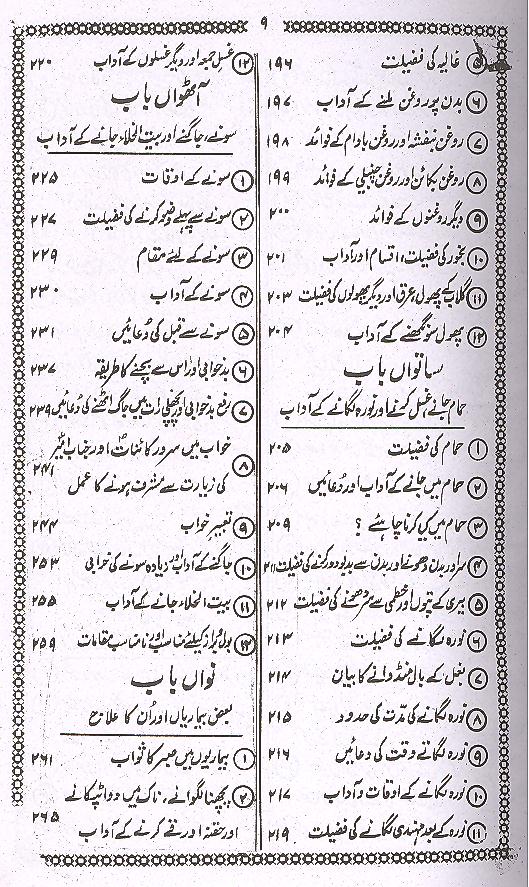 ۹
۵ غالیہ کی فضیلت ۱۹۶
۶ بدن پر روغن ملنے کے آداب ۱۹۷
۷ روغن بنفشہ اور روغن بادام کے فوائد ۱۹۸
۸ روغن بکائن اور روغن چنبیلی کے فوائد ۱۹۹
۹ دیگر روغنوں کے فوائد ۲۰۰
۱۰ بخور کی فضیلت، اقسام اور آداب ۲۰۱
۱۱ گلاب کے پھول، عرق اور دیگر پھولوں کی فضیلت ۲۰۳
۱۲ پھول سونگھنے کے آداب ۲۰۴
ساتواں باب
حمام جانے، غسل کرنے اور نورہ لگانے کے آداب
۱ حمام کی فضیلت ۲۰۵
۲ حمام میں جانے کے آداب اور دُعائیں ۲۰۶
۳ حمام میں کیا کرنا چاہئے ؟ ۲۰۹
۴ سر اور بدن دھونے اور بدن سے بدبو دور کرنے کی فضیلت ۲۱۱
۵ بیری کے پتوں اور خطمی سے سر دھونے کی فضیلت ۲۱۲
۶ نورہ لگانے کی فضیلت ۲۱۳
۷ بغل کے بال منڈوانے کا بیان ۲۱۴
۸ نورہ لگانے کی مدّت کی حدود ۲۱۵
۹ نورہ لگاتے وقت کی دعائیں ۲۱۶
۱۰ نورہ لگانے کے اوقات و آداب ۲۱۷
۱۱ نورہ کے بعد مہندی لگانے کی فضیلت ۲۱۹
۱۲ غسلِ جمعہ اور دیگر غسلوں کے آداب ۲۲۰
آٹھواں باب
سونے، جاگنے اور بیت الخلاء جانے کے آداب
۱ سونے کے اوقات ۲۲۵
۲ سونے سے پہلے وضو کرنے کی فضیلت ۲۲۷
۳ سونے کے لیئے مقام ۲۲۹
۴ سونے کے آداب ۲۳۰
۵ سونے سے قبل کی دُعائیں ۲۳۱
۶ بدخوابی اور اس سے بچنے کا طریقہ ۲۳۷
۷ رفع بدخوابی اور پچھلی رات میں جاگ اٹھنے کی دُعائیں ۲۳۹
خواب میں سرور کائنات اور جناب امیر
۸ کی زیارت سے مشرف ہونے کا عمل ۲۴۱
۹ تعبیر خواب ۲۴۴
۱۰ جاگنے کے آداب اور زیادہ سونے کی خرابی ۲۵۳
۱۱ بیت الخلاء جانے کے آداب ۲۵۵
۱۲ بول و براز کیلئے مناسب اور نامناسب مقامات ۲۵۹
نواں باب
بعض بیماریاں اور اُن کا علاج
۱ بیماریوں میں صبر کا ثواب ۲۶۱
۲ پچھنا لگوانے، ناک میں دوا ٹپکانے
اور حقنہ اور قے کرنے کے آداب ۲۶۵